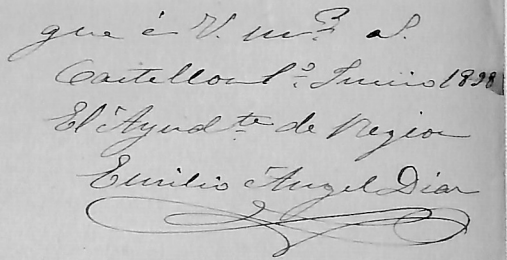 gue á V. m.ˢ aˢ.
Castellon 1.º Junio 1898
El Ayud.te de Region
Emilio Angel Diaz